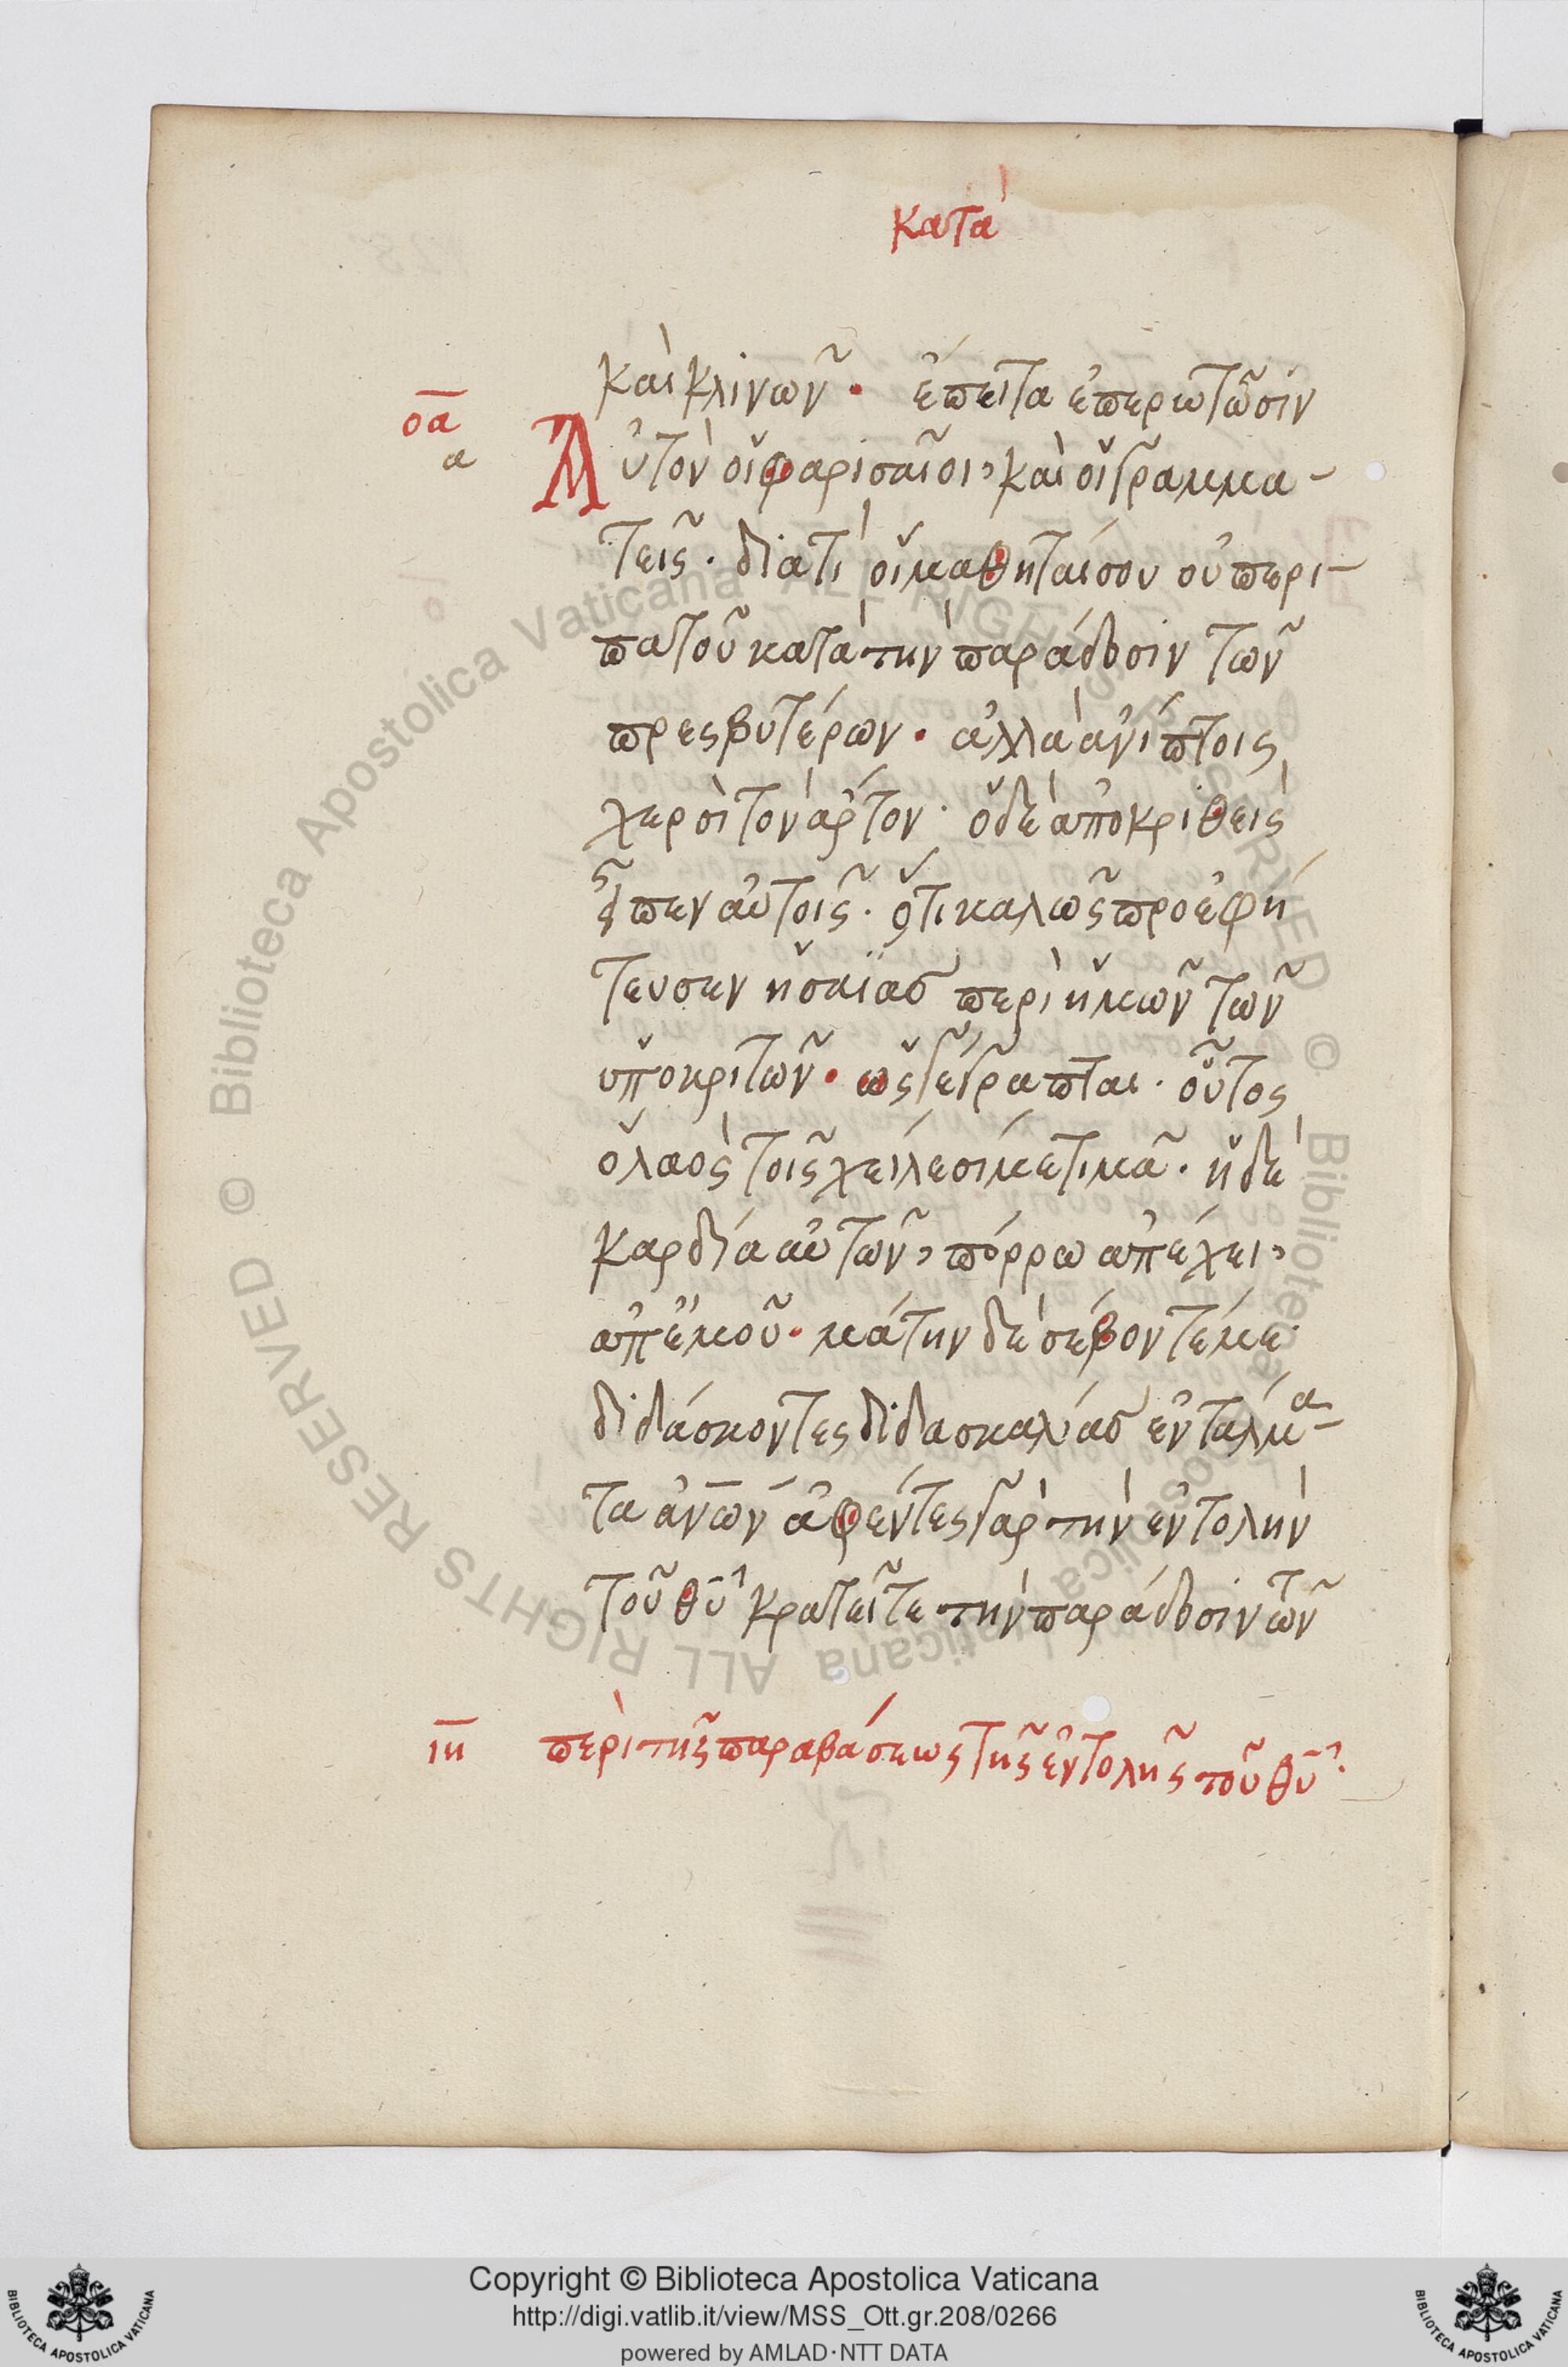 κατὰ
καὶ κλινῶν· ἔπειτα ἐπερωτῶσιν
οα
α
Αὐτὸν οἱ φαρισαῖοι, καὶ οἱ γραμμα-
τεῖς· διατί οἱ μαθηταί σου οὐ περι-
πατοῦ κατὰ τὴν παράδοσιν τῶν
πρεσβυτέρων· ἀλλὰ ἀνίπτοις
χερσὶ τὸν ἄρτον· ὁ δὲ ἀποκριθεὶς
εἶπεν αὐτοῖς· ὅτι καλῶς προεφή
τευσεν ἡσαΐας περὶ ἡμῶν τῶν
ὑποκριτῶν· ὡς γέγραπται· οὗτος
ὁ λαὸς τοῖς χείλεσί με τιμᾶ· ἡ δὲ
καρδία αὐτῶν, πόρρω ἀπέχει,
ἀπ' ἐμοῦ· μάτην δὲ σέβοντέ με·
διδάσκοντες διδασκαλίας ἐντάλμα-
τα ἀνων· ἀφέντες γὰρ τὴν ἐντολὴν
τοῦ θυ κρατεῖτε τὴν παράδοσιν τῶν
ιη περὶ τῆς παραβάσεως τῆς ἐντολῆς τοῦ θυ·
© Biblioteca Apostolica Vaticana ALL RIGHTS RESERVED © Biblioteca Apostolica Vaticana ALL RIGHTS RESERVED
BIBLIOTECA APOSTOLICA VATICANA
Copyright © Biblioteca Apostolica Vaticana
http://digi.vatlib.it/view/MSS_Ott.gr.208/0266
powered by AMLAD·NTT DATA
BIBLIOTECA APOSTOLICA VATICANA